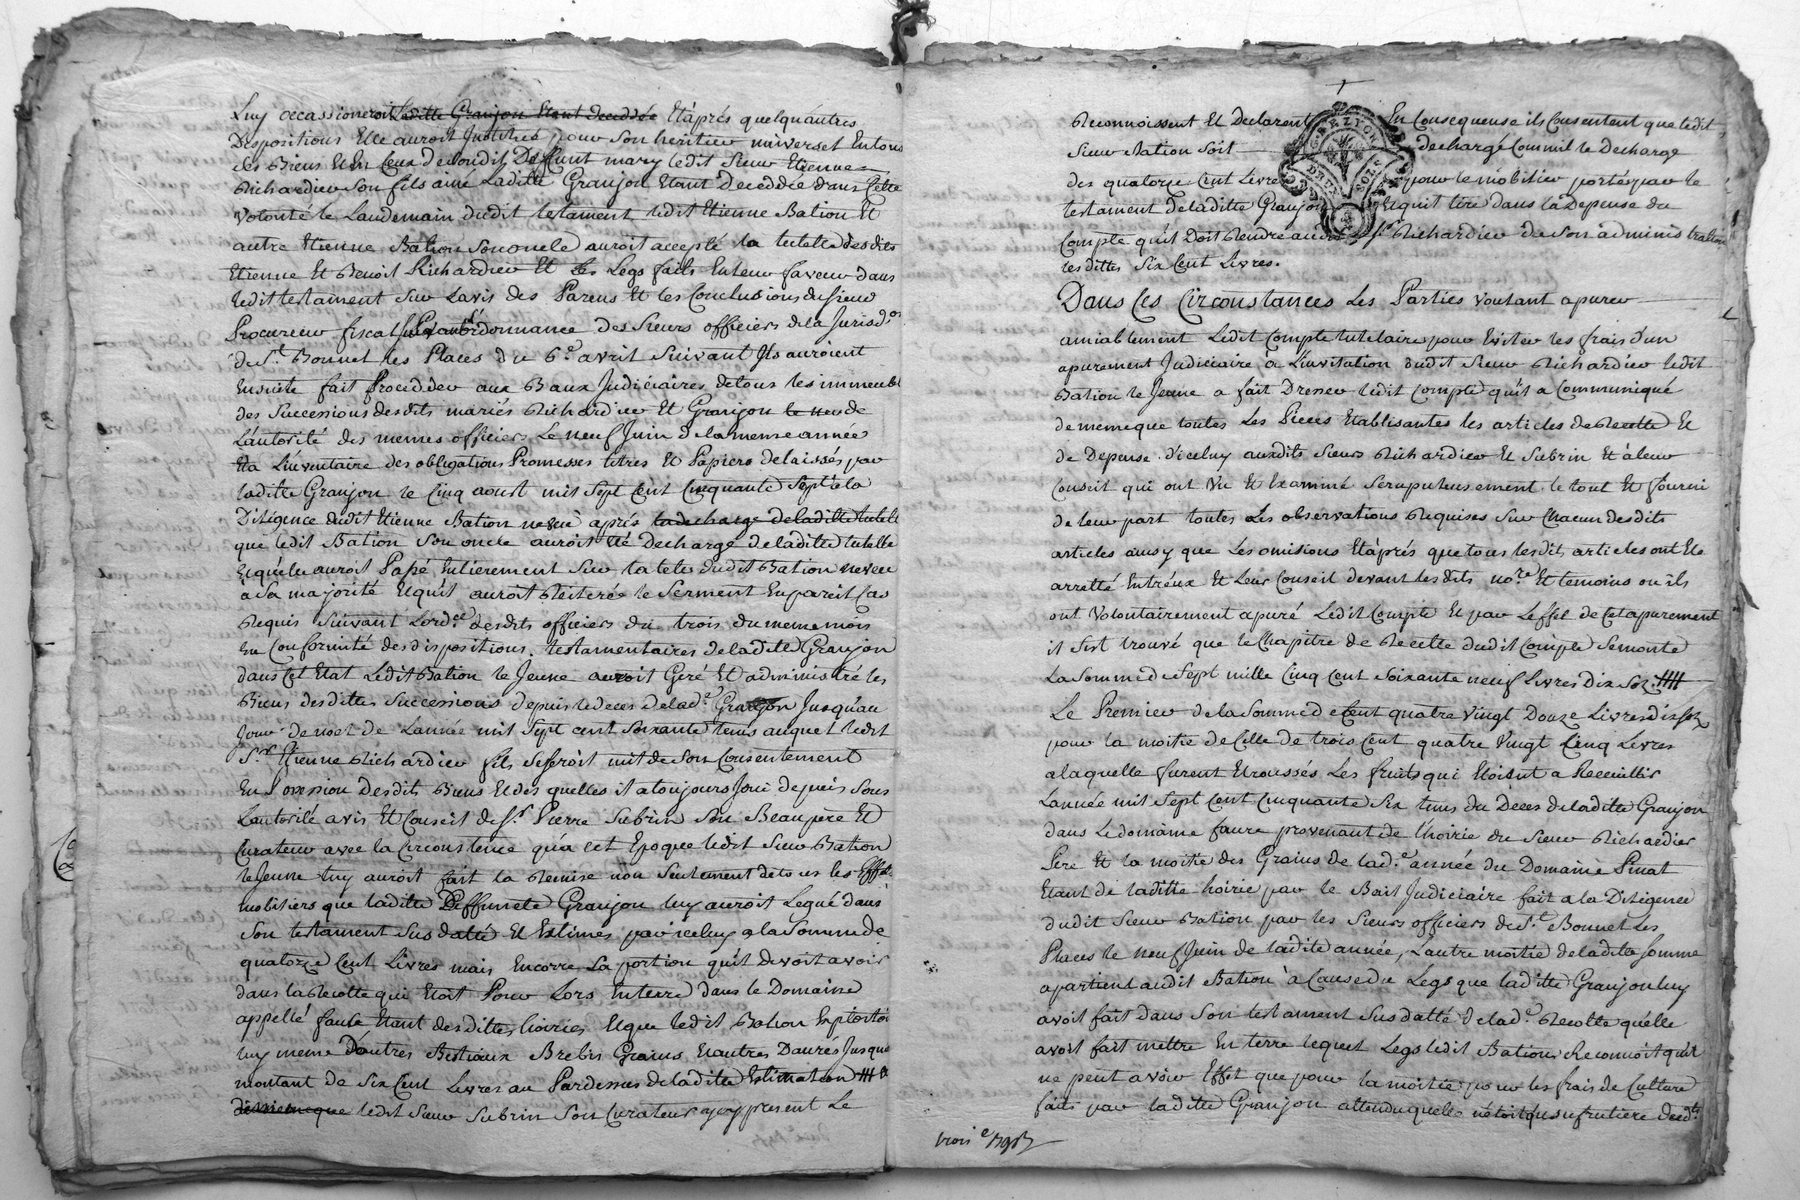 Luy occasioneroit laditte Granjon Etant deceddée Etáprés quelquáutres
Dispositions Elle auroit Jnstitué pour son heritier universel Entous
ses Biens Et En Ceux de sondit Deffunt mary ledit sieur Etienne
Richardier son fils ainé Laditte Granjon Etant Deceddée dans Cette
volonté le Laudemain dudit testament, ledit Etienne Bation Et
autre Etienne Bation son oncle auroit accepté la tutelle desdits
Etienne Et Benoit Richardier Et les Legs faits En leur faveur dans
ledit testament sur Lavis des Parens Et les Conclusions du sieur
Procureur fiscal par ordonnance des sieurs officiers de la Jurisd.on
de St. Bonnet les Places du 6.e avril suivant Jls auroient
Ensuite fait Proceddér aux Baux Judiciaires de tous les immeubl
des successions desdits mariés Richardier Et Granjon le neu de
L'autorité des memes officiers Le neuf Juin de la meme année
Eta L'inventaire des obligations Promesses titres Et Papiers delaissés par
laditte Granjon le Cinq aoust mil sept Cent Cinquante sept a la
Diligence dudit Etienne Bation neveu aprés la decharge de laditte tutelle
que ledit Bation son oncle auroit été Dechargé de laditte tutelle
Et qu'elle auroit Passé Entierement sur la tete dudit Bation neveu
à sa majorité Et quil auroit Reiteré le serment En pareil Cas
Requis suivant Lord.ce desdits officiers du trois du meme mois
En Conformité des dispositions testamentaires de laditte Granjon
dans Cet Etat Ledit Bation le Jeune auroit Geré Et administré les
Biens desdittes successions depuis le deces de lad.e Granjon Jusqu'au
Jour de noel de Lannée mil sept cent soixante tems auquel ledit
Sr. Etienne Richardier fils se seroit mit de son Consentement
En Possession desdits Biens Et des quelles il a toujours Joui depuis sous
Lautorité avis Et Conseil de Sr. Pierre Subrin son Beaupere Et
Curateur avec la Circonstance qu'á cet Epoque ledit sieur Bation
le Jeune luy auroit fait la Remise non seulement de tous les Effets
mobiliers que laditte Deffunte Granjon luy auroit Legué dans
son testament sus datté Et Estimés par icelluy a la somme de
quatorze Cent Livres mais Encorre la portion qu'il devoit avoir
dans la Recolte qui Etoit Pour Lors En terre dans le Domaine
appellé faure Etant desdittes hoiries Et que ledit Bation Exploitoi
luy meme D'autres Bestiaux Brebis Grains Et autres Danrés Jusqu'au
montant de six Cent Livres au Pardessus de laditte Estimation
de meme que ledit sieur Subrin son Curateur icy present Le
Reconnoissent Et Declarent En Consequense ils Consentent que ledit
sieur Bation soit déchargé Comme il le Decharge
des quatorze Cent Livres pour le mobilier porté par le
testament de laditte Granjon Et quil tire dans la Depense du
Compte qu'il Doit Rendre audit Sr. Richardier de son administration
lesdittes six Cent Livres.
Dans Ces Circonstances Les Parties voulant apurer
amiablement Ledit Compte tutelaire pour Eviter les frais d'un
apurement Judiciaire à L'invitation dudit sieur Richardier ledit
Bation le Jeune a fait Dresser ledit Compte qu'il a Communiqué
de meme que toutes Les Pieces Etablisantes les articles de Recette Et
de Depense d'iceluy auxdits sieurs Richardier Et Subrin Et à leur
Conseil qui ont vu Et Examiné scrupuleusement le tout Et fourni
de leur part toutes Les observations Requises sur Chacun desdits
articles ainsy que Les omissions Etáprés que tous lesdits articles ont Eté
arretté Entréux Et Leur Conseil devant lesdits no.res Et temoins ou ils
ont Volontairement apuré Ledit Compte Et par Leffet de Cet apurement
il s'est trouvé que le Chapitre de Recette dudit Compte se monte
La somme de sept mille Cinq Cent soixante neuf Livres Dix sols
Le Premier de la somme de Cent quatre vingt Douze Livres dix sols
pour la moitié de Celle de trois Cent quatre vingt Cinq Livres
a laquelle furent Etroussés Les fruits qui Etoient a Receuillir
Lannée mil sept Cent Cinquante six tems du Deces de laditte Granjon
dans Le domaine faure provenant de l'hoirie du sieur Richardier
Pere Et la moitié des Grains de lad.e année du Domaine Pinat
Etant de laditte hoirie par le Bail Judiciaire fait a la Diligence
dudit sieur Bation par les sieurs officiers de St. Bonnet Les
Places le neuf Juin de laditte année, Lautre moitié de laditte somme
apartient audit Bation à Cause du Legs que laditte Granjon luy
avoit fait dans son testament sus datté de lad.e Recolte quélle
avoit fait mettre En terre lequel Legs ledit Bation Reconnoit qu'il
ne peut avoir Effet que pour la moitié pour les frais de Culture
faits par laditte Granjon attendu quelle n'étoit qu'usufrutiere desd.ts